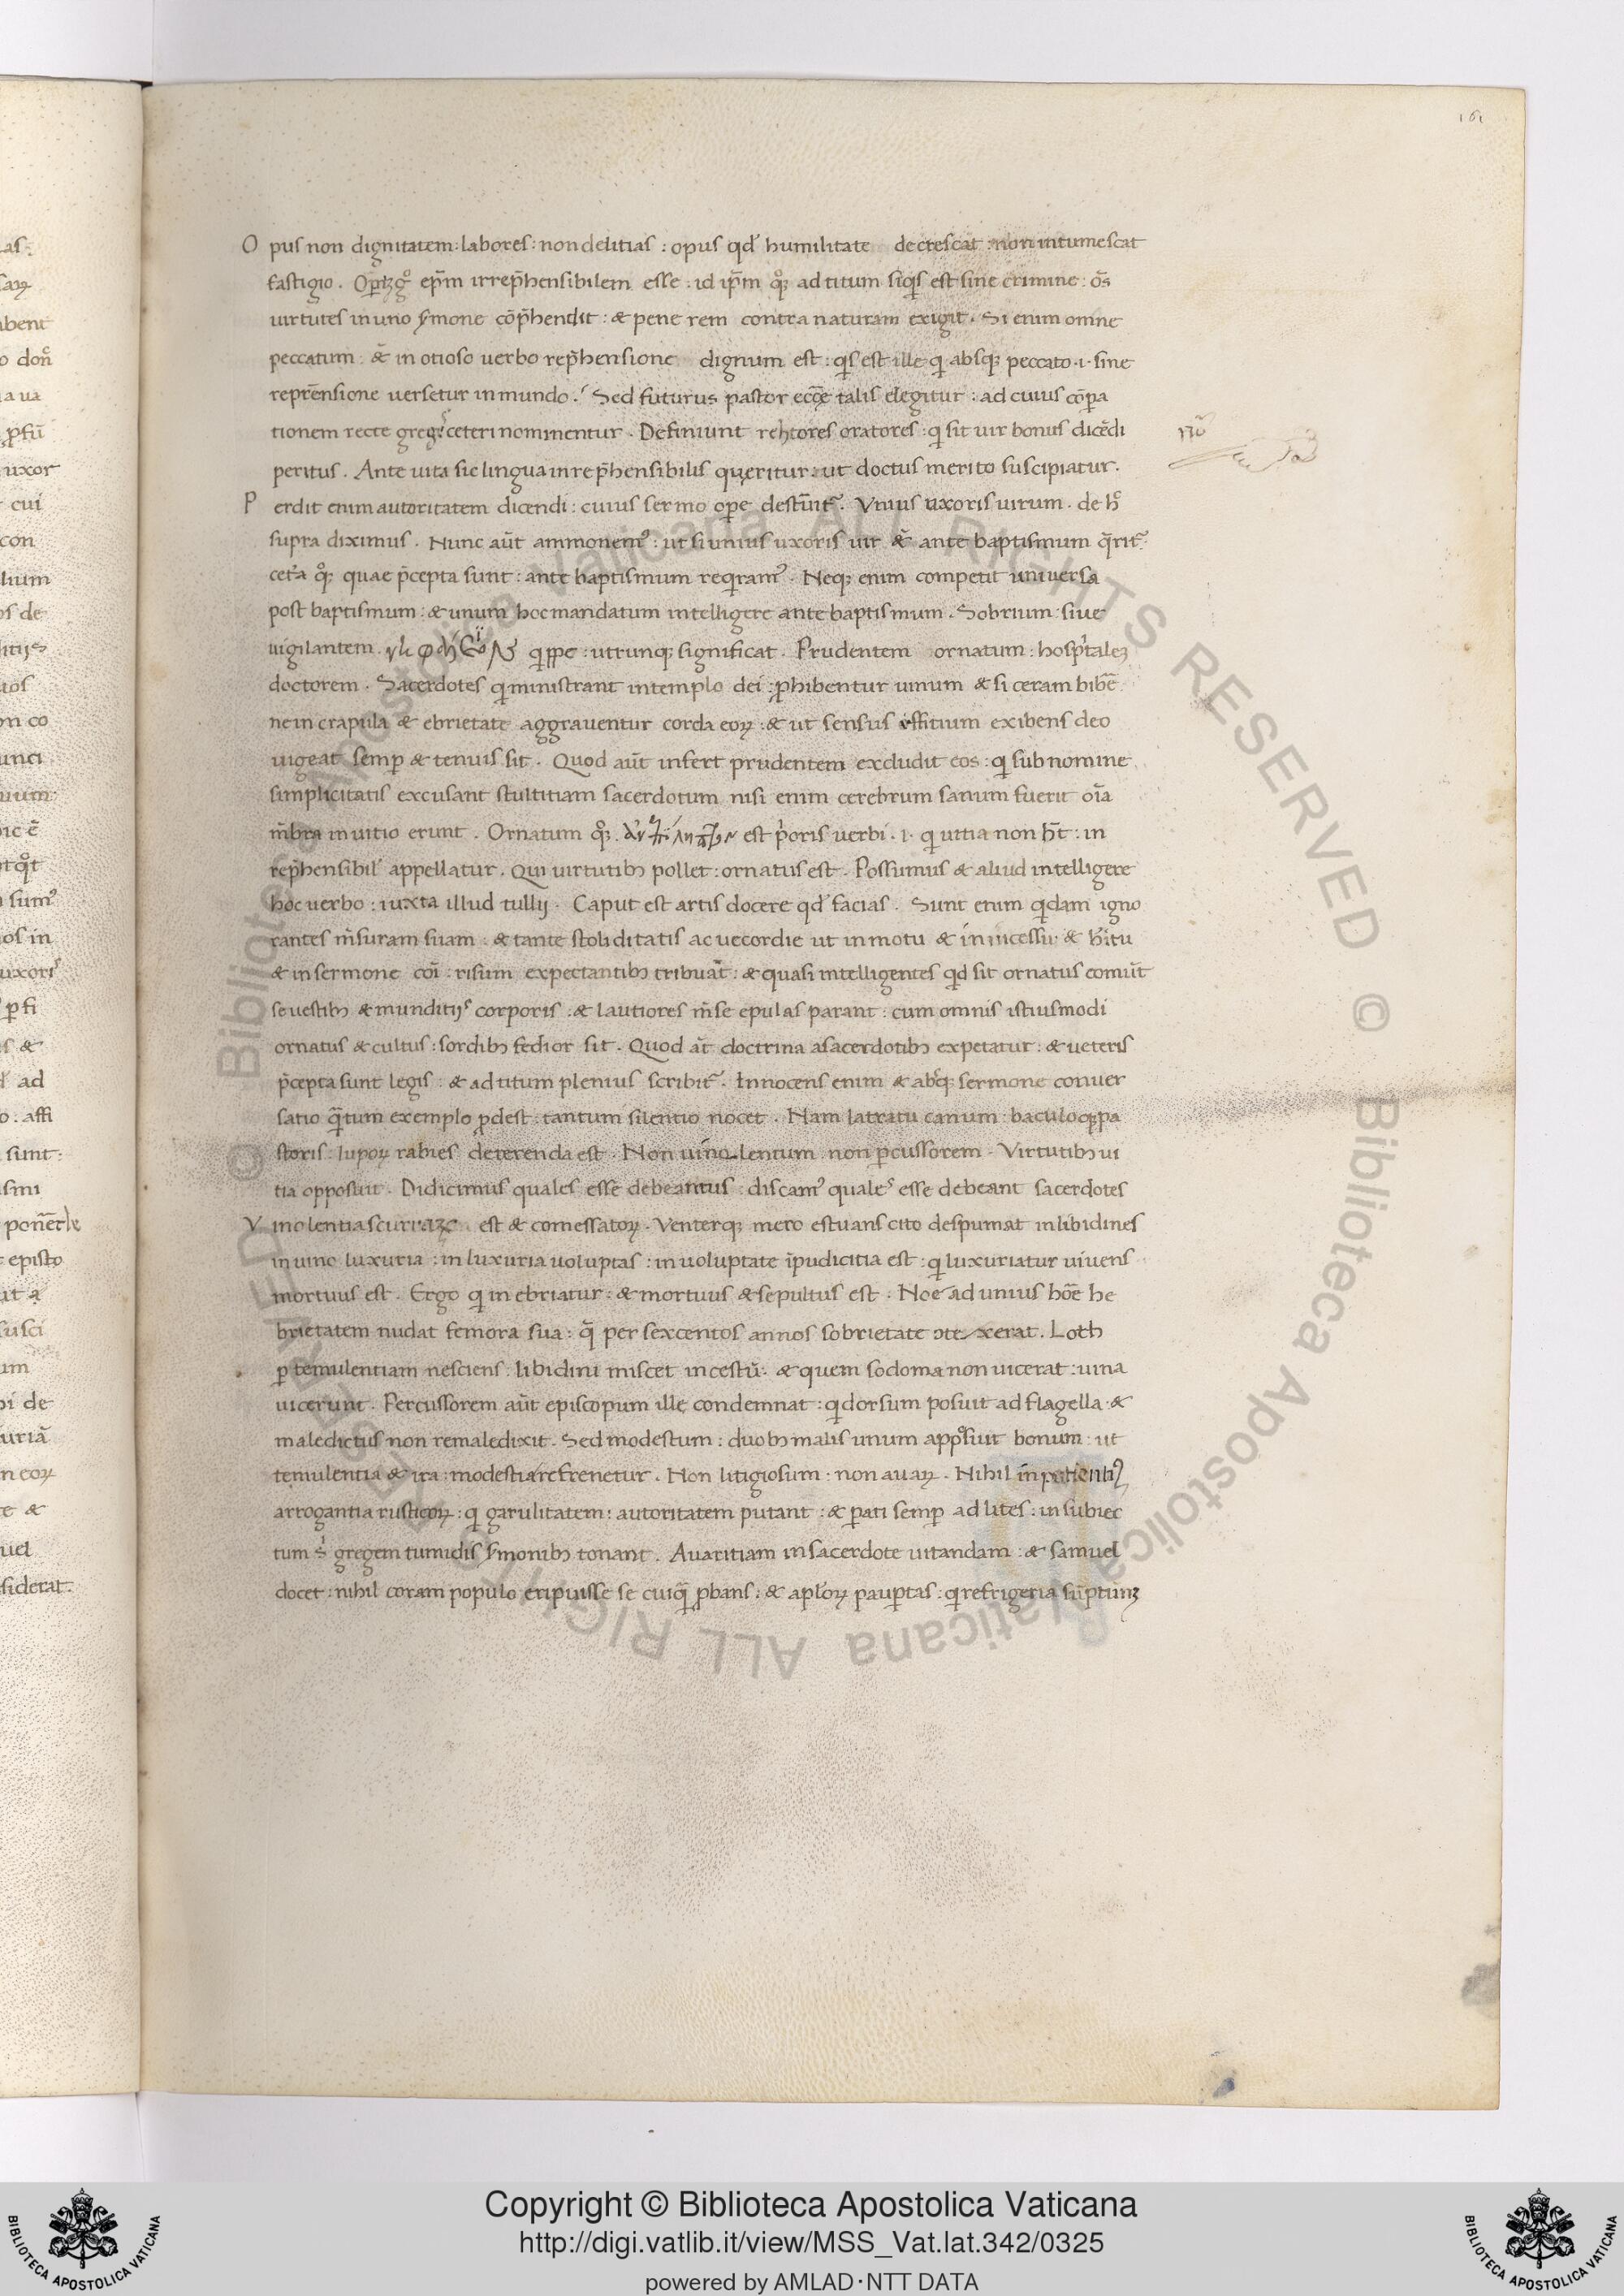 161
O pus non dignitatem: labores: non delitias: opus qd' humilitate decrescat: non intumescat
fastigio. ep̃m irrep̃hensibilem esse: id ip̃m qͦꝫ ad titum siq̃s est sine crimine: oẽs
uirtutes in uno ẜmone cõp̃hendit: & pene rem contra naturam exigit. Si enim omne
peccatum: & in otioso uerbo rep̃hensione dignum est: q̃s est ille q̃ absqꝫ peccato .i. sine
reprẽnsione uersetur in mundo? Sed futurus pastor talis elegitur: ad cuius cõpa
tionem recte ceteri nominentur. Definiunt rehtores oratores: q sit uir bonus dicẽdi
peritus. Ante uita sic lingua inrep̃hensibilis quęritur: ut doctus merito suscipiatur.
P erdit enim autoritatem dicendi: cuius sermo ope destr̃uit̃. Vnius uxoris uirum. de hͦ
supra diximus. Nunc aũt ammonem᾽: ut si unius uxoris uir & ante baptismum q̃rit̃.
cet̃a qͦꝫ quae p̃cepta sunt: ante baptismum req̃ram᾽. Neqꝫ enim competit uniuersa
post baptismum: & unum hoc mandatum intelligere ante baptismum. Sobrium: siue
uigilantem. q̃ppe: utrunqꝫ significat. Prudentem ornatum: hosp̃talẽ
doctorem. Sacerdotes q̃ ministrant in templo dei: ꝓhibentur uinum & siceram bibẽ
ne in crapula & ebrietate aggrauentur corda eoꝝ: & ut sensus offitium exibens deo
uigeat semꝑ & tenuis sit. Quod aũt infert prudentem excludit eos: q̃ sub nomine
simplicitatis excusant stultitiam sacerdotum nisi enim cerebrum sanum fuerit oĩa
m̃bra in uitio erunt. Ornatum qͦꝫ. est p̃oris uerbi. i. q̃ uitia non hñt: in
rep̃hensibil' appellatur. Qui uirtutibꝫ pollet: ornatus est. Possumus & aliud intelligere
hoc uerbo: iuxta illud tullij. Caput est artis docere qd' facias. Sunt enim q̃dam igno
rantes m̃suram suam: & tante stoliditatis ac uecordie ut in motu & in incessu & h̃itu
& in sermone coĩ: risum expectantibꝫ tribuãt: & quasi intelligentes qd' sit ornatus comũt
se uestibꝫ & munditijs corporis: & lautiores m̃se epulas parant: cum omnis istiusmodi
ornatus & cultus: sordibꝫ fedior sit. Quod aũt doctrina a sacerdotibꝫ expetatur: & ueteris
p̃cepta sunt legis: & ad titum plenius scribit̃. Innocens enim & absqꝫ sermone conuer
satio q̃tum exemplo ꝓdest: tantum silentio nocet. Nam latratu canum: baculoqꝫ pa
storis: lupoꝝ rabies deterenda est. Non uinolentum non ꝑcussorem. Virtutibꝫ ui
tia opposuit. Didicimus quales esse debeamus: discam᾽ quales esse debeant sacerdotes
V inolentia est & comessatoꝝ. Venterqꝫ mero estuans cito despumat in libidines
in uino luxuria: in luxuria uoluptas: in uoluptate ĩpudicitia est: q̃ luxuriatur uiuens
mortuus est. Ergo q̃ inebriatur: & mortuus & sepultus est. Noe ad unius hoře he
brietatem nudat femora sua: q̃ per sexcentos annos sobrietate ɔtexerat. Loth
ꝑ temulentiam nesciens: libidini miscet incestũ. & quem sodoma non uicerat: uina
uicerunt. Percussorem aũt episcopum ille condemnat: q̃ dorsum posuit ad flagella &
maledictus non remaledixit. Sed modestum: duobꝫ malis unum apposuit bonum: ut
temulentia & ira: modestia refrenetur. Non litigiosum: non auaꝝ. Nihil inpatientiꝰ
arrogantia rusticoꝝ: q̃ garulitatem: autoritatem putant: & parati semꝑ ad lites: in subiec
tum s̃ gregem tumidis ẜmonibꝫ tonant. Auaritiam in sacerdote uitandam: & samuel
docet: nihil coram populo eripuisse se cuiq̃ ꝓbans: & apl'oꝝ pauꝑtas: q̃ refrigeria sũptuũ
Copyright © Biblioteca Apostolica Vaticana
http://digi.vatlib.it/view/MSS_Vat.lat.342/0325
powered by AMLAD·NTT DATA
BIBLIOTECA APOSTOLICA VATICANA
BIBLIOTECA APOSTOLICA VATICANA
© Biblioteca Apostolica Vaticana ALL RIGHTS RESERVED
© Biblioteca Apostolica Vaticana ALL RIGHTS RESERVED